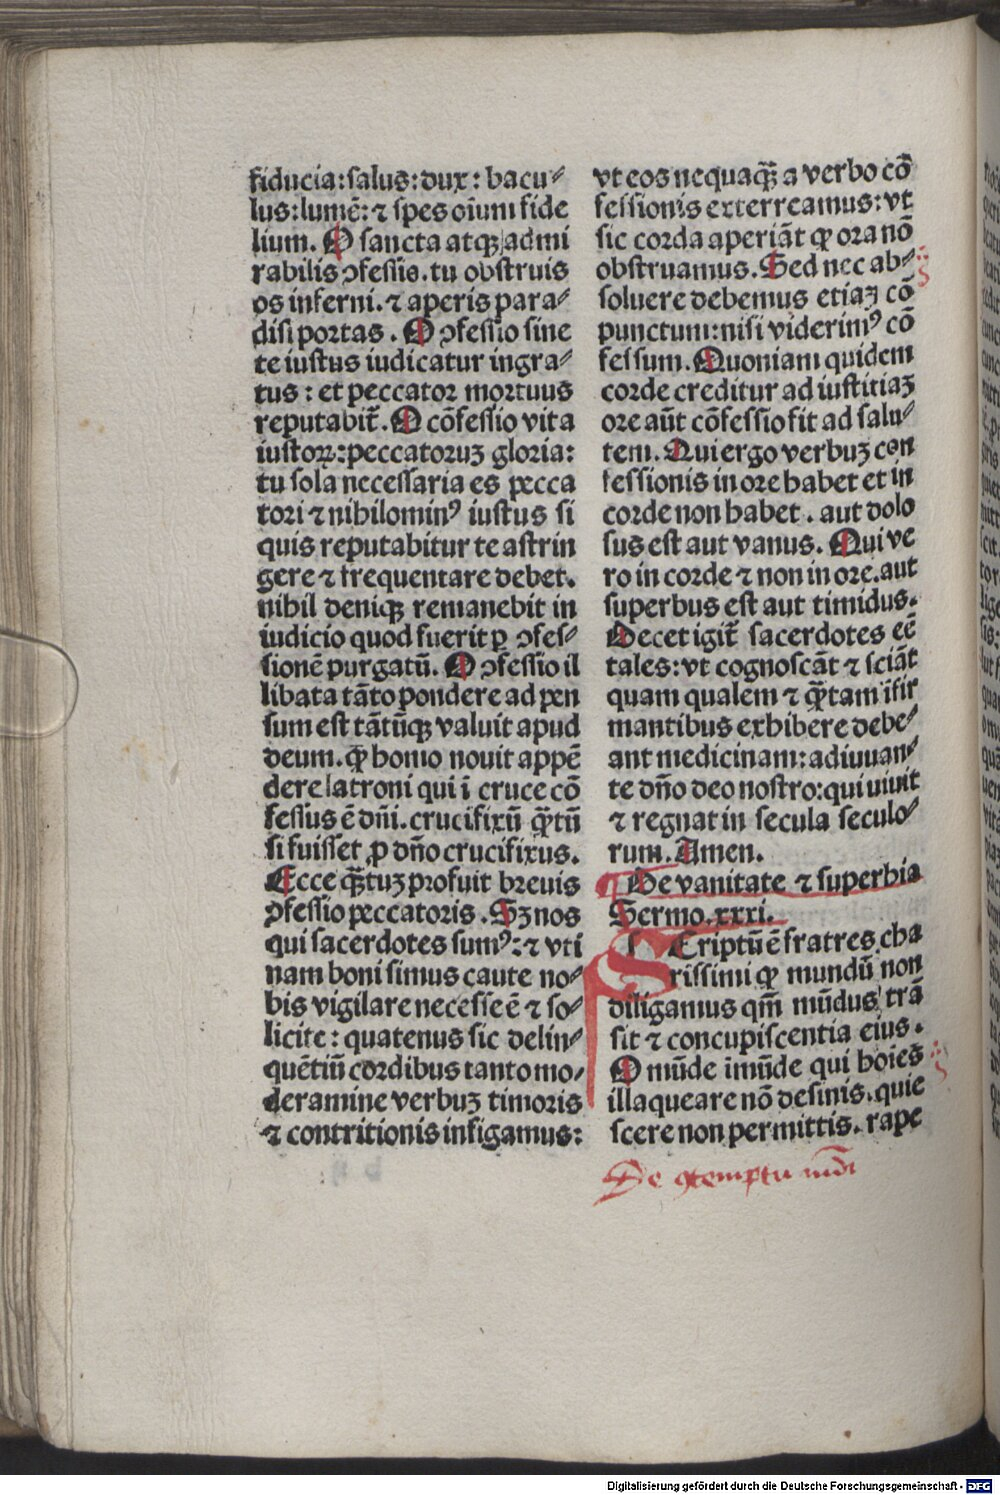 fiducia:salus:dux: bacu⸗
lus:lumē: ⁊ spes oīum fide
lium. O sancta atqꝫ admi
rabilis ↄfessio.tu obstruis
os inferni. ⁊ aperis para⸗
disi portas . O ↄfessio sine
te iustus iudicatur ingra⸗
tus : et peccator mortuus
reputabit̄. O cōfessio vita
iustoꝝ: peccatoruꝫ gloria:
tu sola necessaria es pecca
tori ⁊ nihilominꝰ iustus si
quis reputabitur te astrin
gere ⁊ frequentare debet.
nihil deniqꝫ remanebit in
iudicio quod fuerit ꝑ ↄfes⸗
sionē purgatū. O ↄfessio il
libata tāto pondere ad pen
sum est tātūqꝫ valuit apud
deum. ꝙ homo nouit appē
dere latroni qui ī cruce cō
fessus ē dn̄i. crucifixū q̄tū
si fuisset ꝓ dn̄o crucifixus.
Ecce q̄tuꝫ profuit breuis
ↄfessio peccatoris . Sꝫ nos
qui sacerdotes sumꝰ: ⁊ vti
nam boni simus caute no⸗
bis vigilare necesse ē ⁊ so⸗
licite : quatenus sic delin⸗
quētiū cordibus tanto mo⸗
deramine verbuꝫ timoris
⁊ contritionis infigamus:
vt eos nequaq̄ a verbo cō
fessionis exterreamus: vt
sic corda aperiāt ꝙ ora nō
obstruamus. Sed nec ab⸗
soluere debemus etiaꝫ cō
punctum: nisi viderimꝰ cō
fessum. Quoniam quidem
corde creditur ad iustitiaꝫ
ore aūt cōfessio fit ad salu⸗
tem. Qui ergo verbuꝫ con
fessionis in ore habet et in
corde non habet . aut dolo
sus est aut vanus. Qui ve
ro in corde ⁊ non in ore. aut
superbus est aut timidus.
Decet igit̄ sacerdotes eē
tales: vt cognoscāt ⁊ sciāt
quam qualem ⁊ q̄tam īfir
mantibus exhibere debe⸗
ant medicinam: adiuuan⸗
te dn̄o deo nostro: qui uiuit
⁊ regnat in secula seculo⸗
rum. Amen.
De vanitate ⁊ superbia
Sermo. xxxi.
SCriptū ē fratres cha
rissimi ꝙ mundū non
diligamus qm̄ mūdus trā
sit ⁊ concupiscentia eius.
O mūde imūde qui hoīes
illaqueare nō desinis. quie
scere non permittis. rape
De ꝯtemptu mūdi
Digitalisierung gefördert durch die Deutsche Forschungsgemeinschaft - DFG